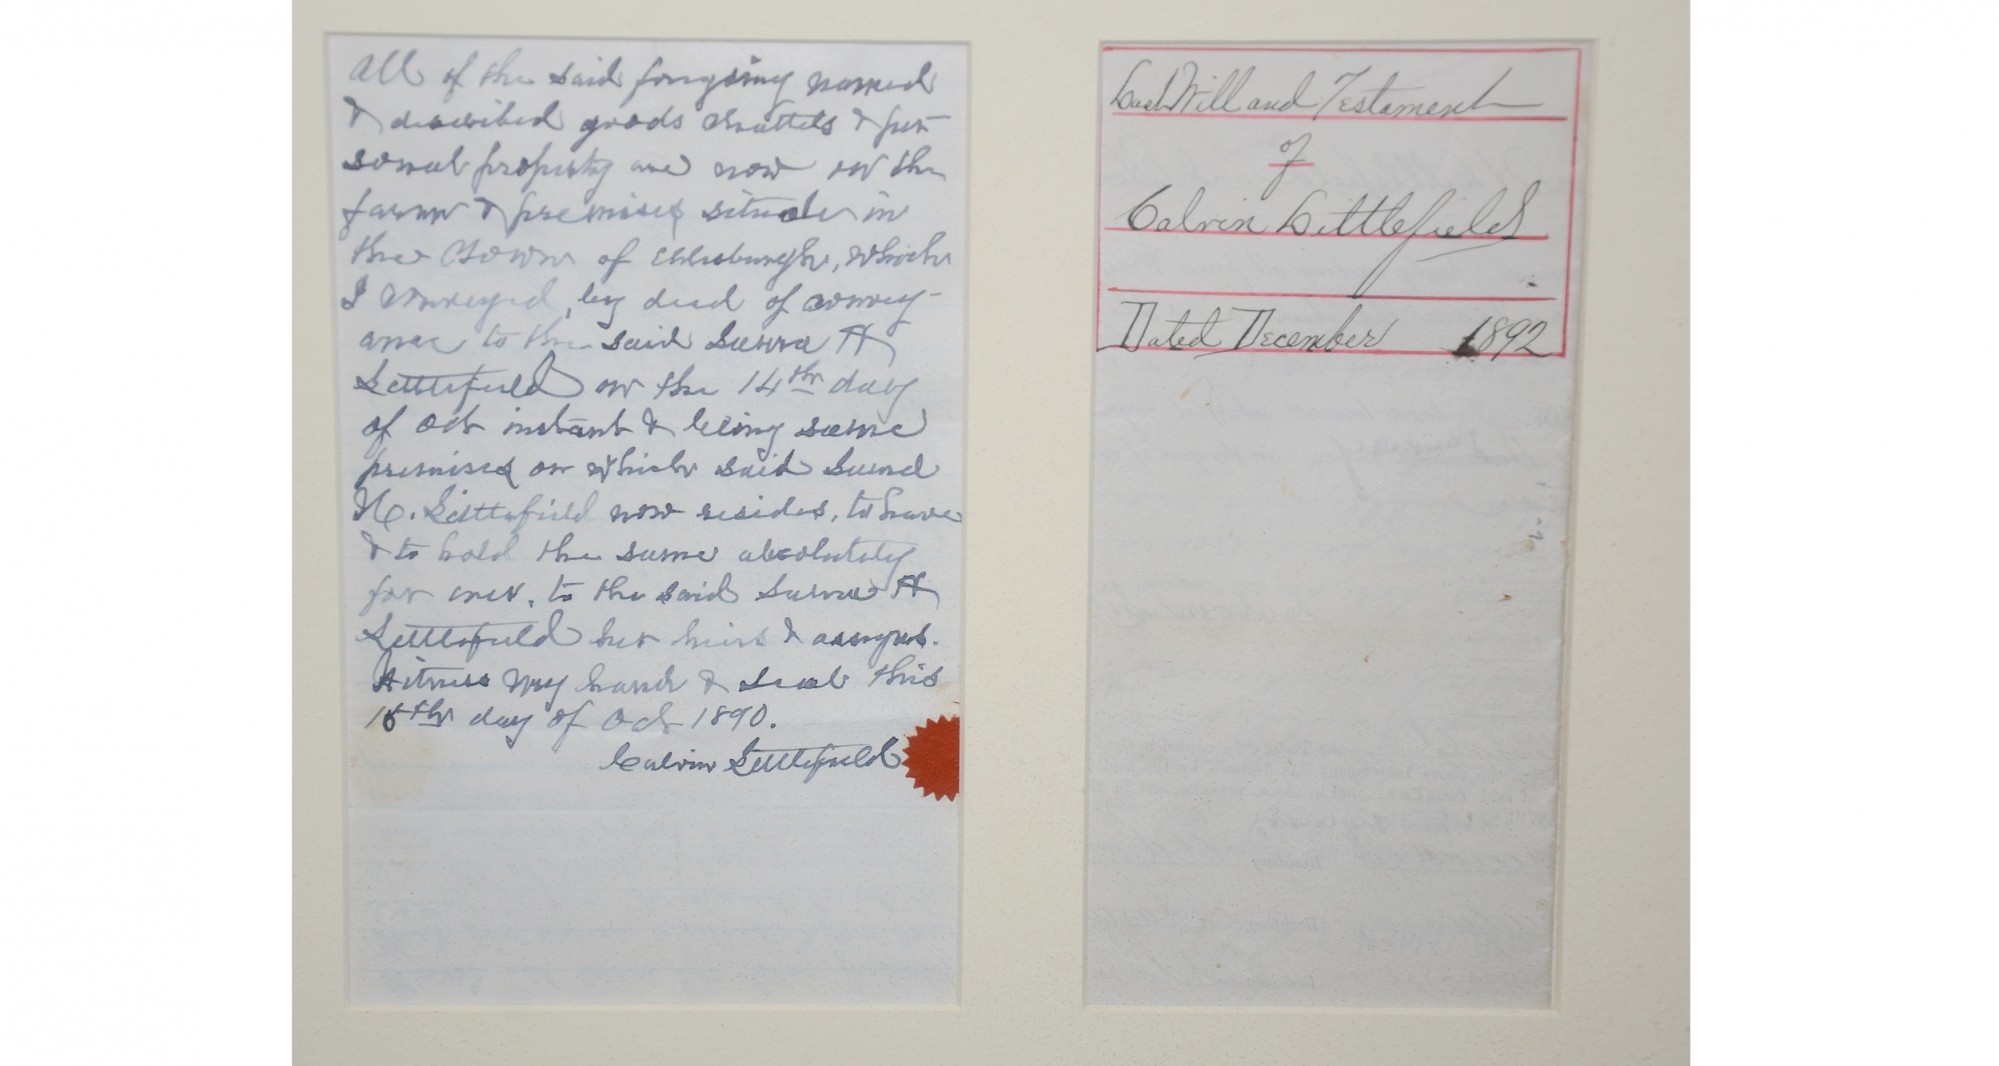 All of the said foregoing named
& described goods chattels & per-
sonal property are now on the
farm & premises situate in
the Town of Ellisburgh, which
I conveyed, by deed of convey-
ance to the said Susna H
Littlefield on the 14th day
of Oct instant & being same
premises on which said
H. Littlefield now resides, to have
& to hold the same absolutely
for ever, to the said H
Littlefield her heirs & assigns.
Witness my hand & seal this
15th day of Oct 1890.
Calvin Littlefield
Last Will and Testament
of
Calvin Littlefield
Dated December 1892